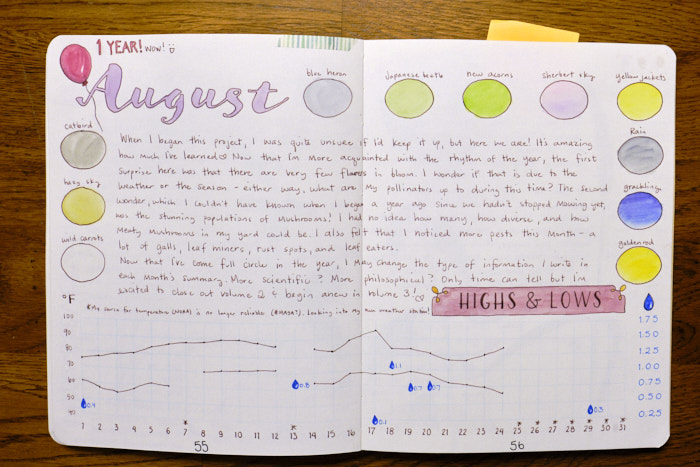 1 YEAR! WOW!
August
blue heron
Japanese beetle
new acorns
sherbert sky
yellow jackets
catbird
Rain
hazy sky
grackling
wild carrots
goldenrod
When I began this project, I was quite unsure if I'd keep it up, but here we are! It's amazing
how much I've learned! Now that I'm more acquainted with the rhythm of the year, the first
surprise here was that there are very few flowers in bloom. I wonder if that is due to the
weather or the season - either way, what are my pollinators up to during this time? The second
wonder, which I couldn't have known when I began a year ago since we hadn't stopped mowing yet,
was the stunning populations of mushrooms! I had no idea how many, how diverse, and how
meaty mushrooms in my yard could be. I also felt that I noticed more pests this month - a
lot of galls, leaf miners, rust spots, and leaf eaters.
Now that I've come full circle in the year, I may change the type of information I write in
each month's summary. More scientific? More philosophical? Only time can tell but I'm
excited to close out volume 2 & begin anew in volume 3!
HIGHS & LOWS
°F
*My source for temperature (NOAA) is no longer reliable (#MAGA?). Looking into my own weather station!
100
90
80
70
60
50
40
1.75
1.50
1.25
1.00
0.75
0.50
0.25
0.4
0.8
1.1
0.7
0.7
0.1
0.3
1 2 3 4 5 6 7 8 9 10 11 12 13 14 15 16 17 18 19 20 21 22 23 24 25 26 27 28 29 30 31
55
56